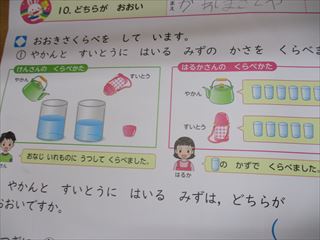 10. どちらが おおい
まえ
おおきさくらべを して います。
① やかんと すいとうに はいる みずの かさを くらべま
けんさんの くらべかた
はるかさんの くらべかた
やかん
すいとう
やかん
すいとう
おなじ いれものに うつして くらべました。
の かずで くらべました。
さん
はるか
やかんと すいとうに はいる みずは, どちらが
おおいですか。